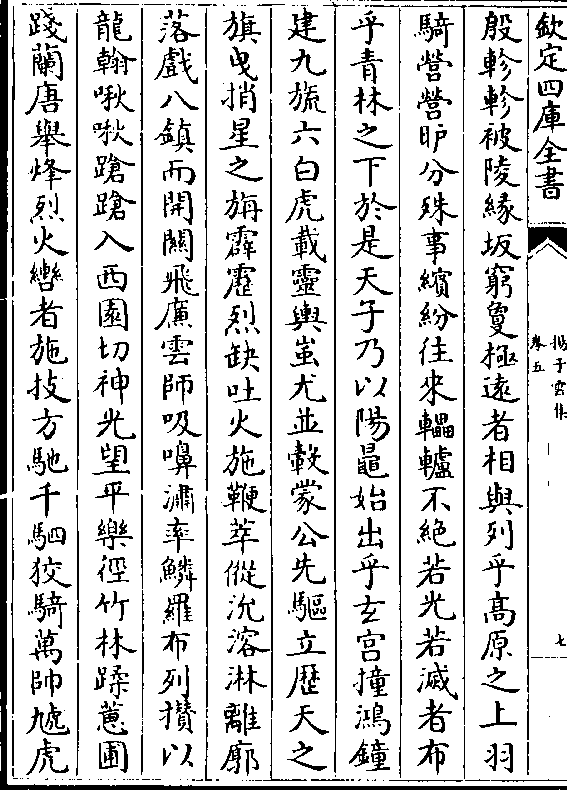 欽定四庫全書
揚子雲集
卷五
七
殷軫軫被陵緣坂窮夐極遠者相與列乎高原之上羽
騎營營昈分殊事繽紛往來轠轤不絕若光若滅者布
乎青林之下於是天子乃以陽鼂始出乎玄宮撞鴻鐘
建九旒六白虎載靈輿蚩尤並轂蒙公先驅立歷天之
旗曳捎星之旃霹靂烈缺吐火施鞭萃傱沇溶淋離廓
落戲八鎮而開闗飛廉雲師吸嚊潚率鱗羅布列攅以
龍翰啾啾蹌蹌入西園切神光望平樂徑竹林蹂蕙圃
踐蘭唐舉烽烈火轡者施技方馳千駟狡騎萬帥虓虎